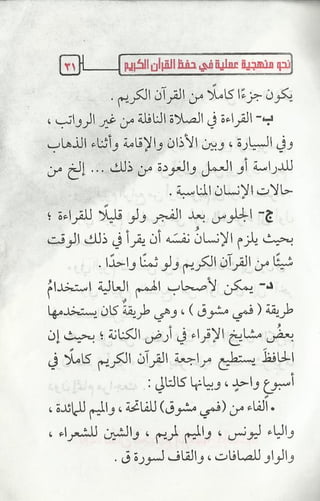 نحو منهجية عملية في حفظ القرآن الكريم
٣١
يكون جزءًا كاملًا من القرآن الكريم .
ب- القراءة في الصلاة النافلة من غير الرواتب ،
وفي السيارة ، وبين الأذان والإقامة وأثناء الذهاب
للدراسة أو العمل والعودة من ذلك ... إلخ من
حالات الإنسان المناسبة .
ج- الجلوس بعد الفجر ولو قليلًا للقراءة ؛
بحيث يلزم الإنسانُ نفسَه أن يقرأ في ذلك الوقت
شيئًا من القرآن الكريم ولو ثمنًا واحدًا .
د- يمكن لأصحاب الهمم العالية استخدامُ
طريقة ( فمي مشوق ) ، وهي طريقةٌ كان يستخدمها
بعضُ مشايخ الإقراء في أرض الكنانة ؛ بحيث إن
الحافظَ يستطيع مراجعة القرآن الكريم كاملًا في
أسبوعٍ واحدٍ ، وبيانها كالتالي :
• الفاء من (فمي مشوق) للفاتحة ، والميم للمائدة ،
والياء ليونس ، والميم لمريم ، والشين للشعراء ،
والواو للصافات ، والقاف لسورة ق .